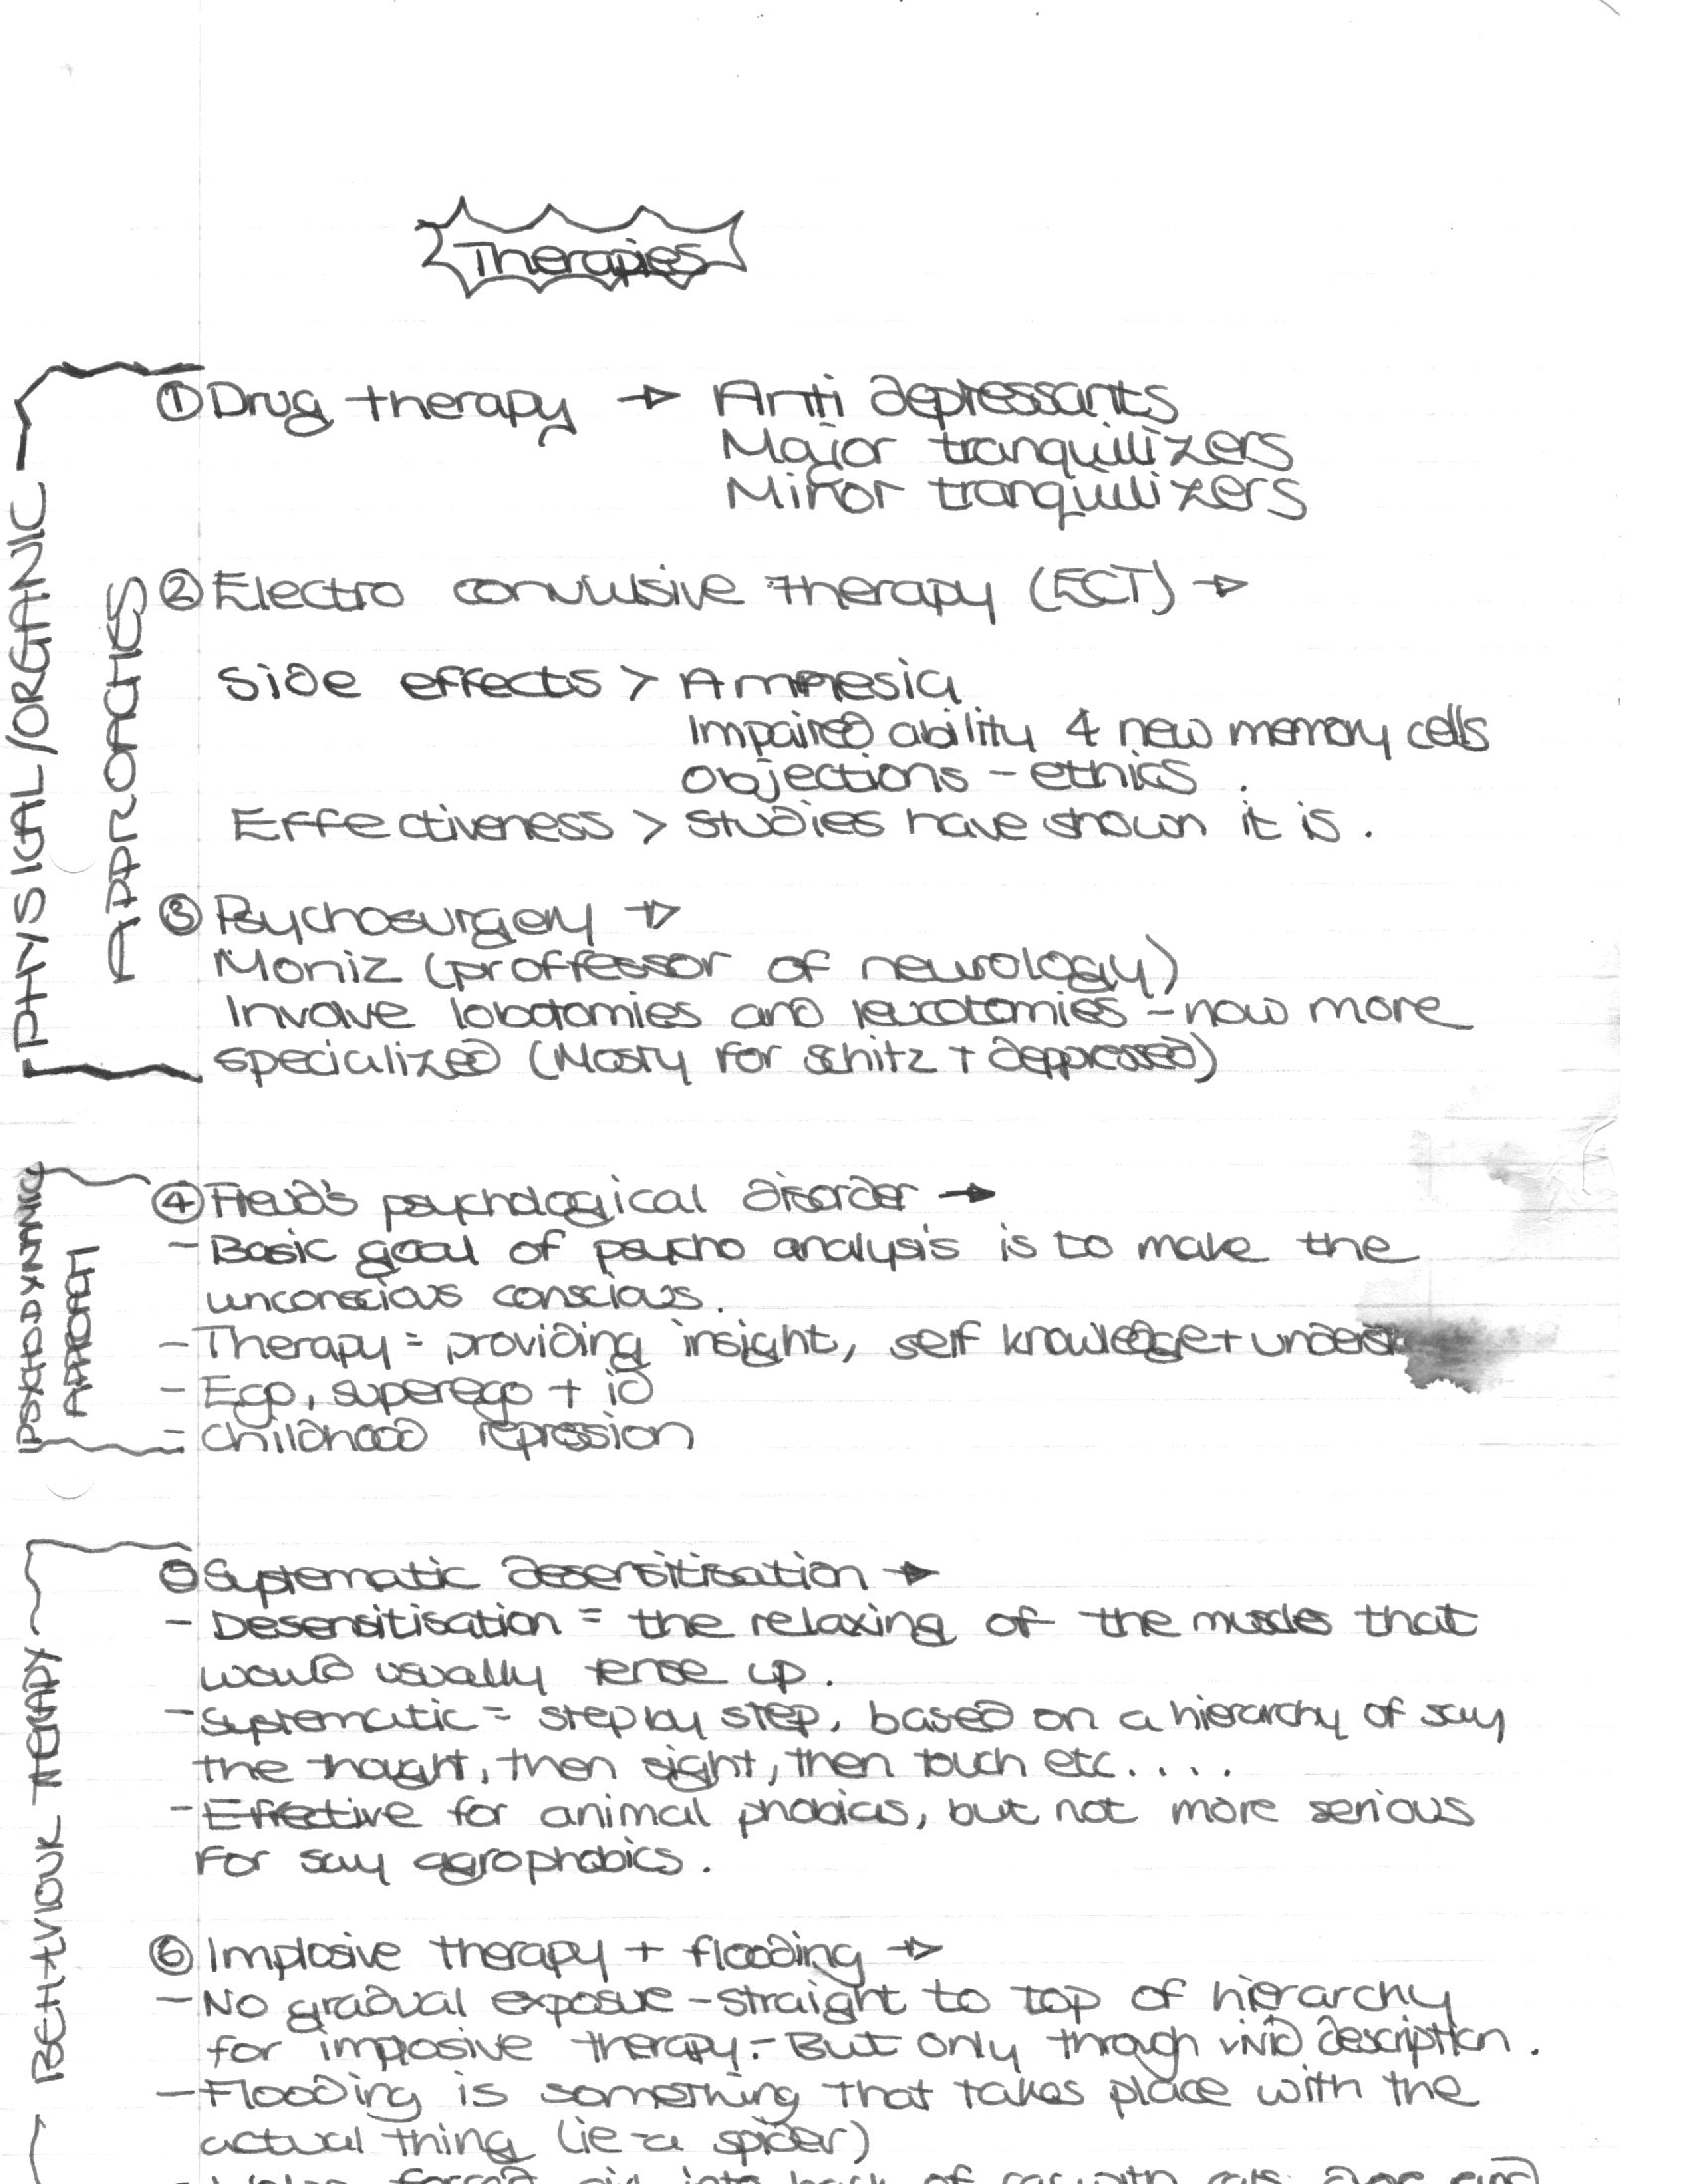 Therapies
PHYSICAL/ORGANIC
APPROACHES
① Drug therapy → Anti depressants
Major tranquilizers
Minor tranquilizers
② Electro convulsive therapy (ECT) →
Side effects > Amnesia
Impaired ability 4 new memory cells
Objections - ethics .
Effectiveness > studies have shown it is .
③ Psychosurgery →
Moniz (proffessor of neurology)
Involve lobotomies and leucotomies - now more
specialized (Mosty for schitz + deppressed)
PSYCHODYNAMIC
APPROACH
④ Freud's psychological disorder →
- Basic goal of psycho analysis is to make the
unconscious conscious.
- Therapy = providing insight, self knowledge +
- Ego, superego + id
- Childhood repression
BEHAVIOUR THERAPY
⑤ Systematic desensitisation →
- Desensitisation = the relaxing of the muscles that
would usually tense up.
- Systematic = step by step, based on a hierarchy of say
the thought, then sight, then touch etc....
- Effective for animal phobias, but not more serious
for say agrophobics.
⑥ Implosive therapy + flooding →
- No gradual exposure - straight to top of hierarchy
for implosive therapy. - But only through vivid description.
- Flooding is something that takes place with the
actual thing (ie - a spider)
forced girl into back of car with